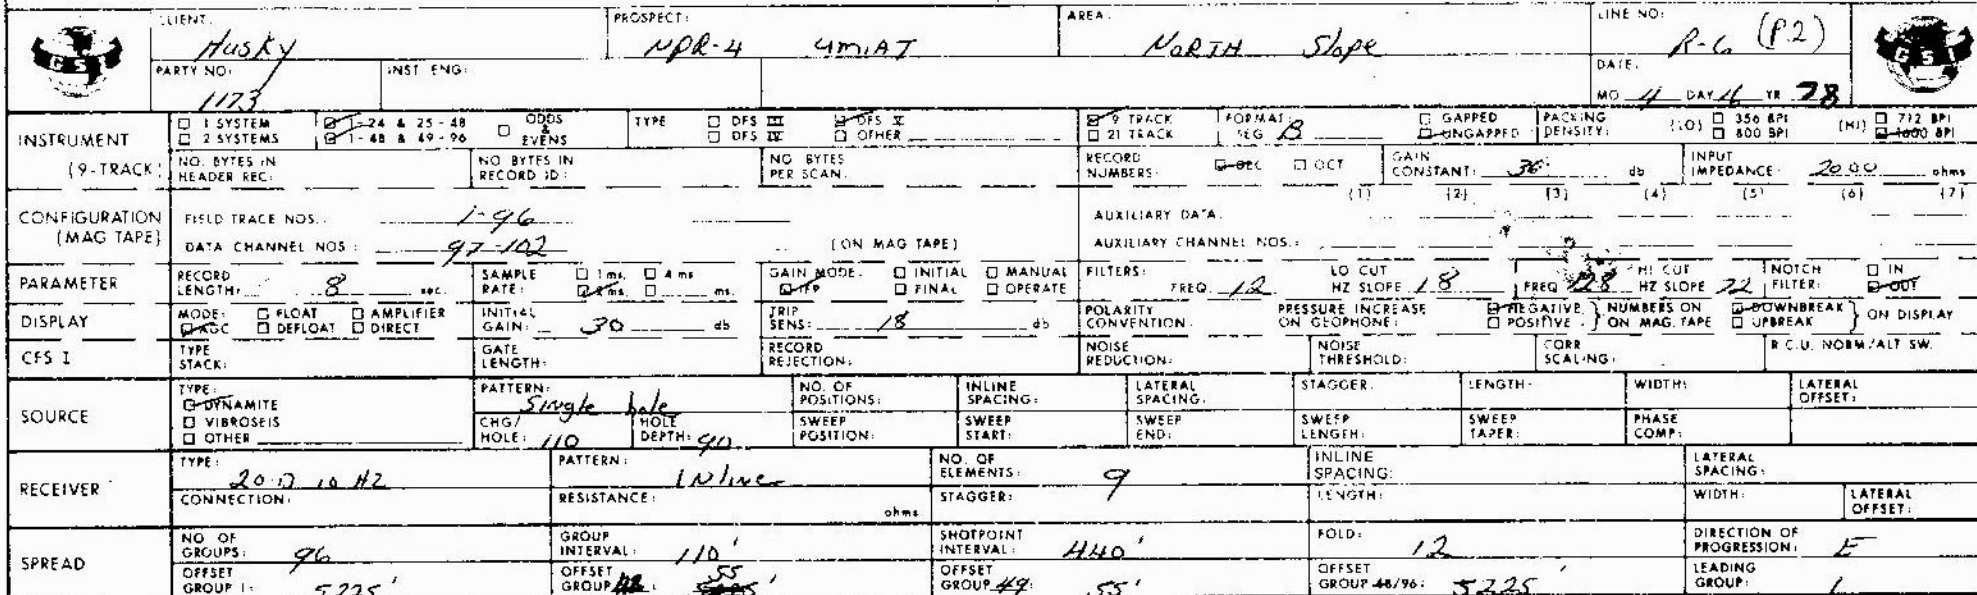 CLIENT: Husky PROSPECT: NPR-4 UMIAT AREA: NORTH Slope LINE NO: R-6 (P.2)
GSI GSI
PARTY NO: 1173 INST ENG: DATE: MO 4 DAY 16 YR 78
INSTRUMENT (9-TRACK)
1 SYSTEM 1-24 & 25-48 ODDS & EVENS TYPE DFS III DFS V 9 TRACK FORMAT: SEG B GAPPED PACKING DENSITY: (LO) 356 BPI (HI) 712 BPI
2 SYSTEMS 1-48 & 49-96 DFS IV OTHER 21 TRACK UNGAPPED 800 BPI 1600 BPI
NO. BYTES IN HEADER REC: NO BYTES IN RECORD ID: NO BYTES PER SCAN: RECORD NUMBERS: DEC OCT GAIN CONSTANT: 36 db INPUT IMPEDANCE: 2000 ohms
CONFIGURATION (MAG TAPE)
(1) (2) (3) (4) (5) (6) (7)
FIELD TRACE NOS.: 1-96 AUXILIARY DATA:
DATA CHANNEL NOS: 97-102 (ON MAG TAPE) AUXILIARY CHANNEL NOS.:
PARAMETER RECORD LENGTH: 8 sec. SAMPLE RATE: 1 ms. 4 ms 2 ms. ms. GAIN MODE: INITIAL MANUAL IFP FINAL OPERATE FILTERS: FREQ 12 LO CUT HZ SLOPE 18 FREQ 128 HI CUT HZ SLOPE 72 NOTCH FILTER: IN OUT
DISPLAY MODE: FLOAT AMPLIFIER AGC DEFLOAT DIRECT INITIAL GAIN: 30 db TRIP SENS: 18 db POLARITY CONVENTION: PRESSURE INCREASE ON GEOPHONE: NEGATIVE POSITIVE } NUMBERS ON MAG. TAPE DOWNBREAK UPBREAK } ON DISPLAY
CFS I TYPE STACK: GATE LENGTH: RECORD REJECTION: NOISE REDUCTION: NOISE THRESHOLD: CORR SCALING: R.C.U. NORM/ALT SW.
SOURCE TYPE: DYNAMITE VIBROSEIS OTHER PATTERN: Single hole NO. OF POSITIONS: INLINE SPACING: LATERAL SPACING: STAGGER: LENGTH: WIDTH: LATERAL OFFSET:
CHG/HOLE: 110 HOLE DEPTH: 90 SWEEP POSITION: SWEEP START: SWEEP END: SWEEP LENGTH: SWEEP TAPER: PHASE COMP:
RECEIVER TYPE: 20-D 10 HZ PATTERN: INline NO. OF ELEMENTS: 9 INLINE SPACING: LATERAL SPACING:
CONNECTION: RESISTANCE: ohms STAGGER: LENGTH: WIDTH: LATERAL OFFSET:
SPREAD NO OF GROUPS: 96 GROUP INTERVAL: 110' SHOTPOINT INTERVAL: 440' FOLD: 12 DIRECTION OF PROGRESSION: E
OFFSET GROUP 1: 5225' OFFSET GROUP 48: 55' OFFSET GROUP 49: 55' OFFSET GROUP 48/96: 5225' LEADING GROUP: 1